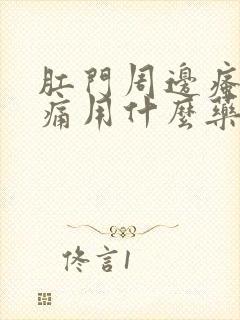 肛門周邊瘙
痛用什麼藥
佟言1